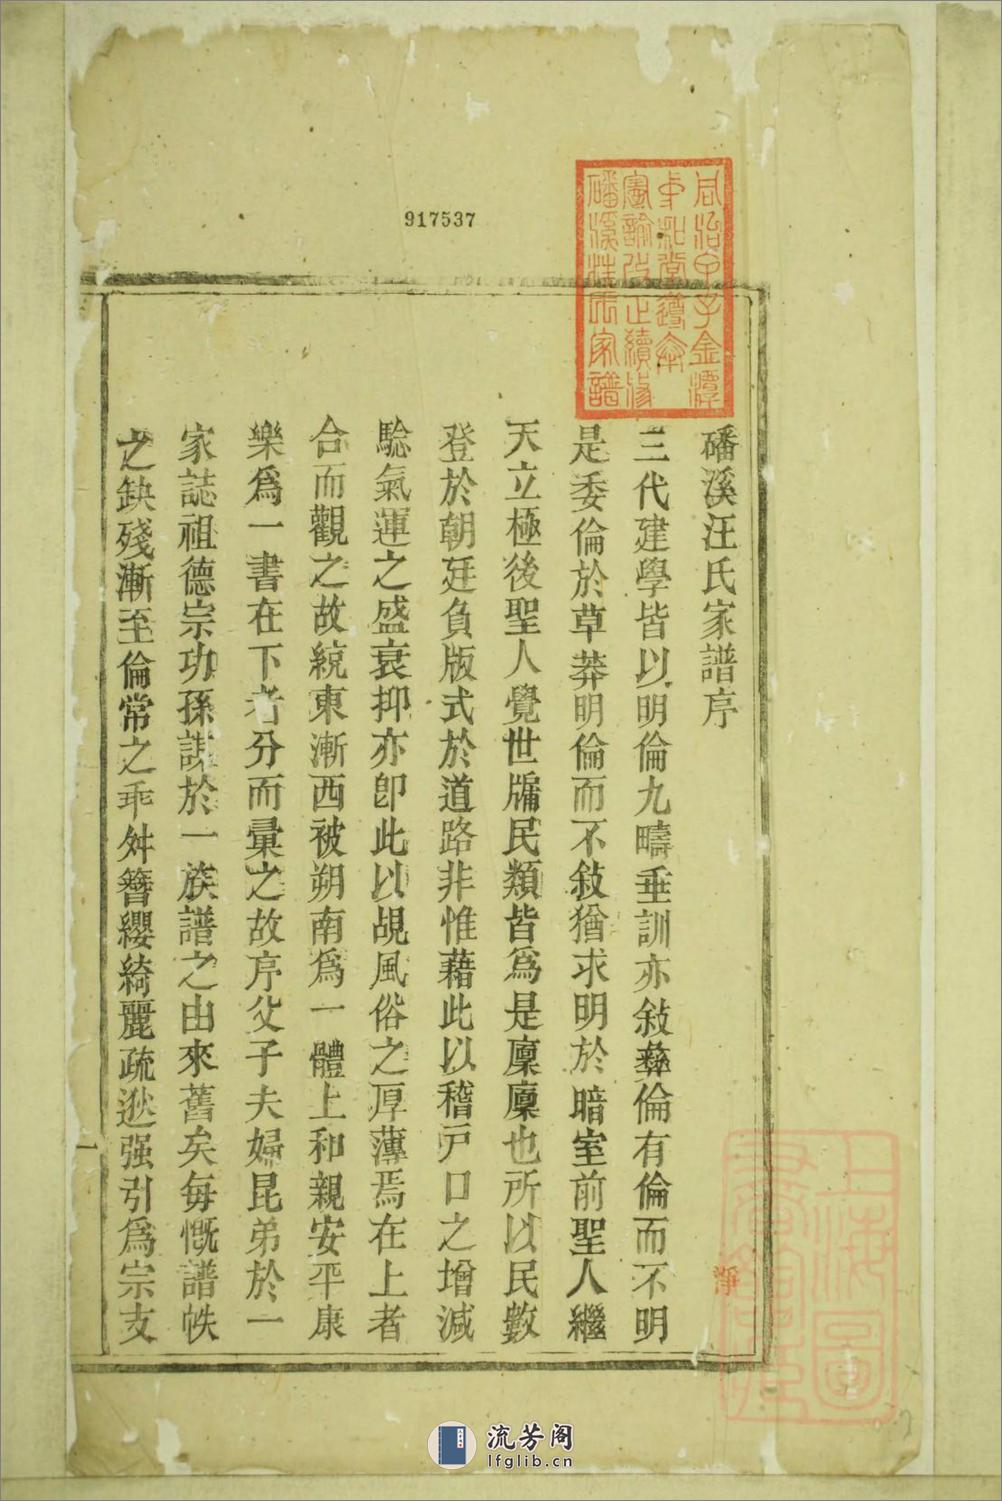 917537
磻溪汪氏家譜
磻溪汪氏家譜序
三代建學皆以明倫九疇垂訓亦敍彝倫有倫而不明
是委倫於草莽明倫而不敍猶求明於暗室前聖人繼
天立極後聖人覺世牖民類皆爲是廩廩也所以民數
登於朝廷負版式於道路非惟藉此以稽戸口之增減
騐氣運之盛衰抑亦卽此以覘風俗之厚薄焉在上者
合而觀之故統東漸西被朔南爲一體上和親安平康
樂爲一書在下者分而彙之故序父子夫婦昆弟於一
家誌祖德宗功孫謀於一族譜之由來舊矣每慨譜帙
之缺殘漸至倫常之乖舛簪纓綺麗疏逖强引爲宗支
一
淨
上海圖書館藏
流芳阁
lfglib.cn